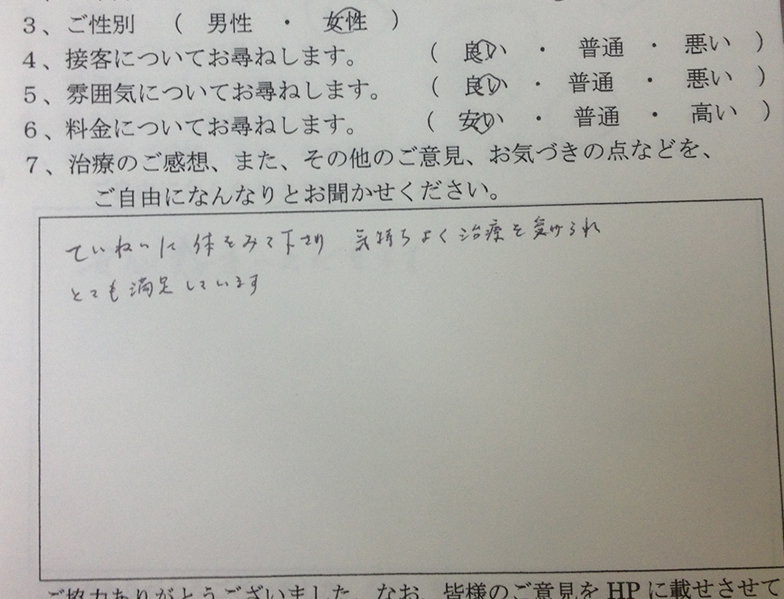 3、ご性別 ( 男性 ・ 女性 )
4、接客についてお尋ねします。 ( 良い ・ 普通 ・ 悪い )
5、雰囲気についてお尋ねします。 ( 良い ・ 普通 ・ 悪い )
6、料金についてお尋ねします。 ( 安い ・ 普通 ・ 高い )
7、治療のご感想、また、その他のご意見、お気づきの点などを、
ご自由になんなりとお聞かせください。
ていねいに体をみて下さり 気持ちよく治療を受けられ
とても満足しています
ご協力ありがとうございました。なお、皆様のご意見をHPに載せさせて